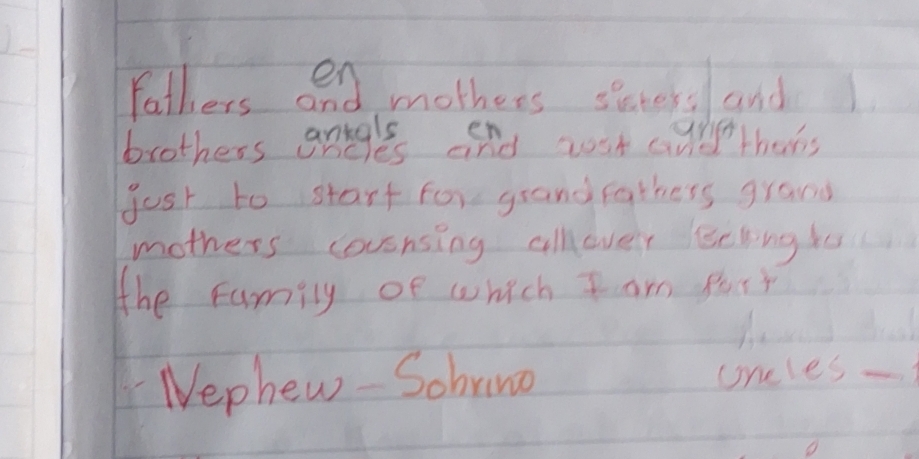 en
Fathers and mothers sisters and
ankals en
brothers uncles and and that's
just to start for grandfathers grand
mothers cousnsing all over
the family of which I am part
- Nephew - Sobrino uncles -